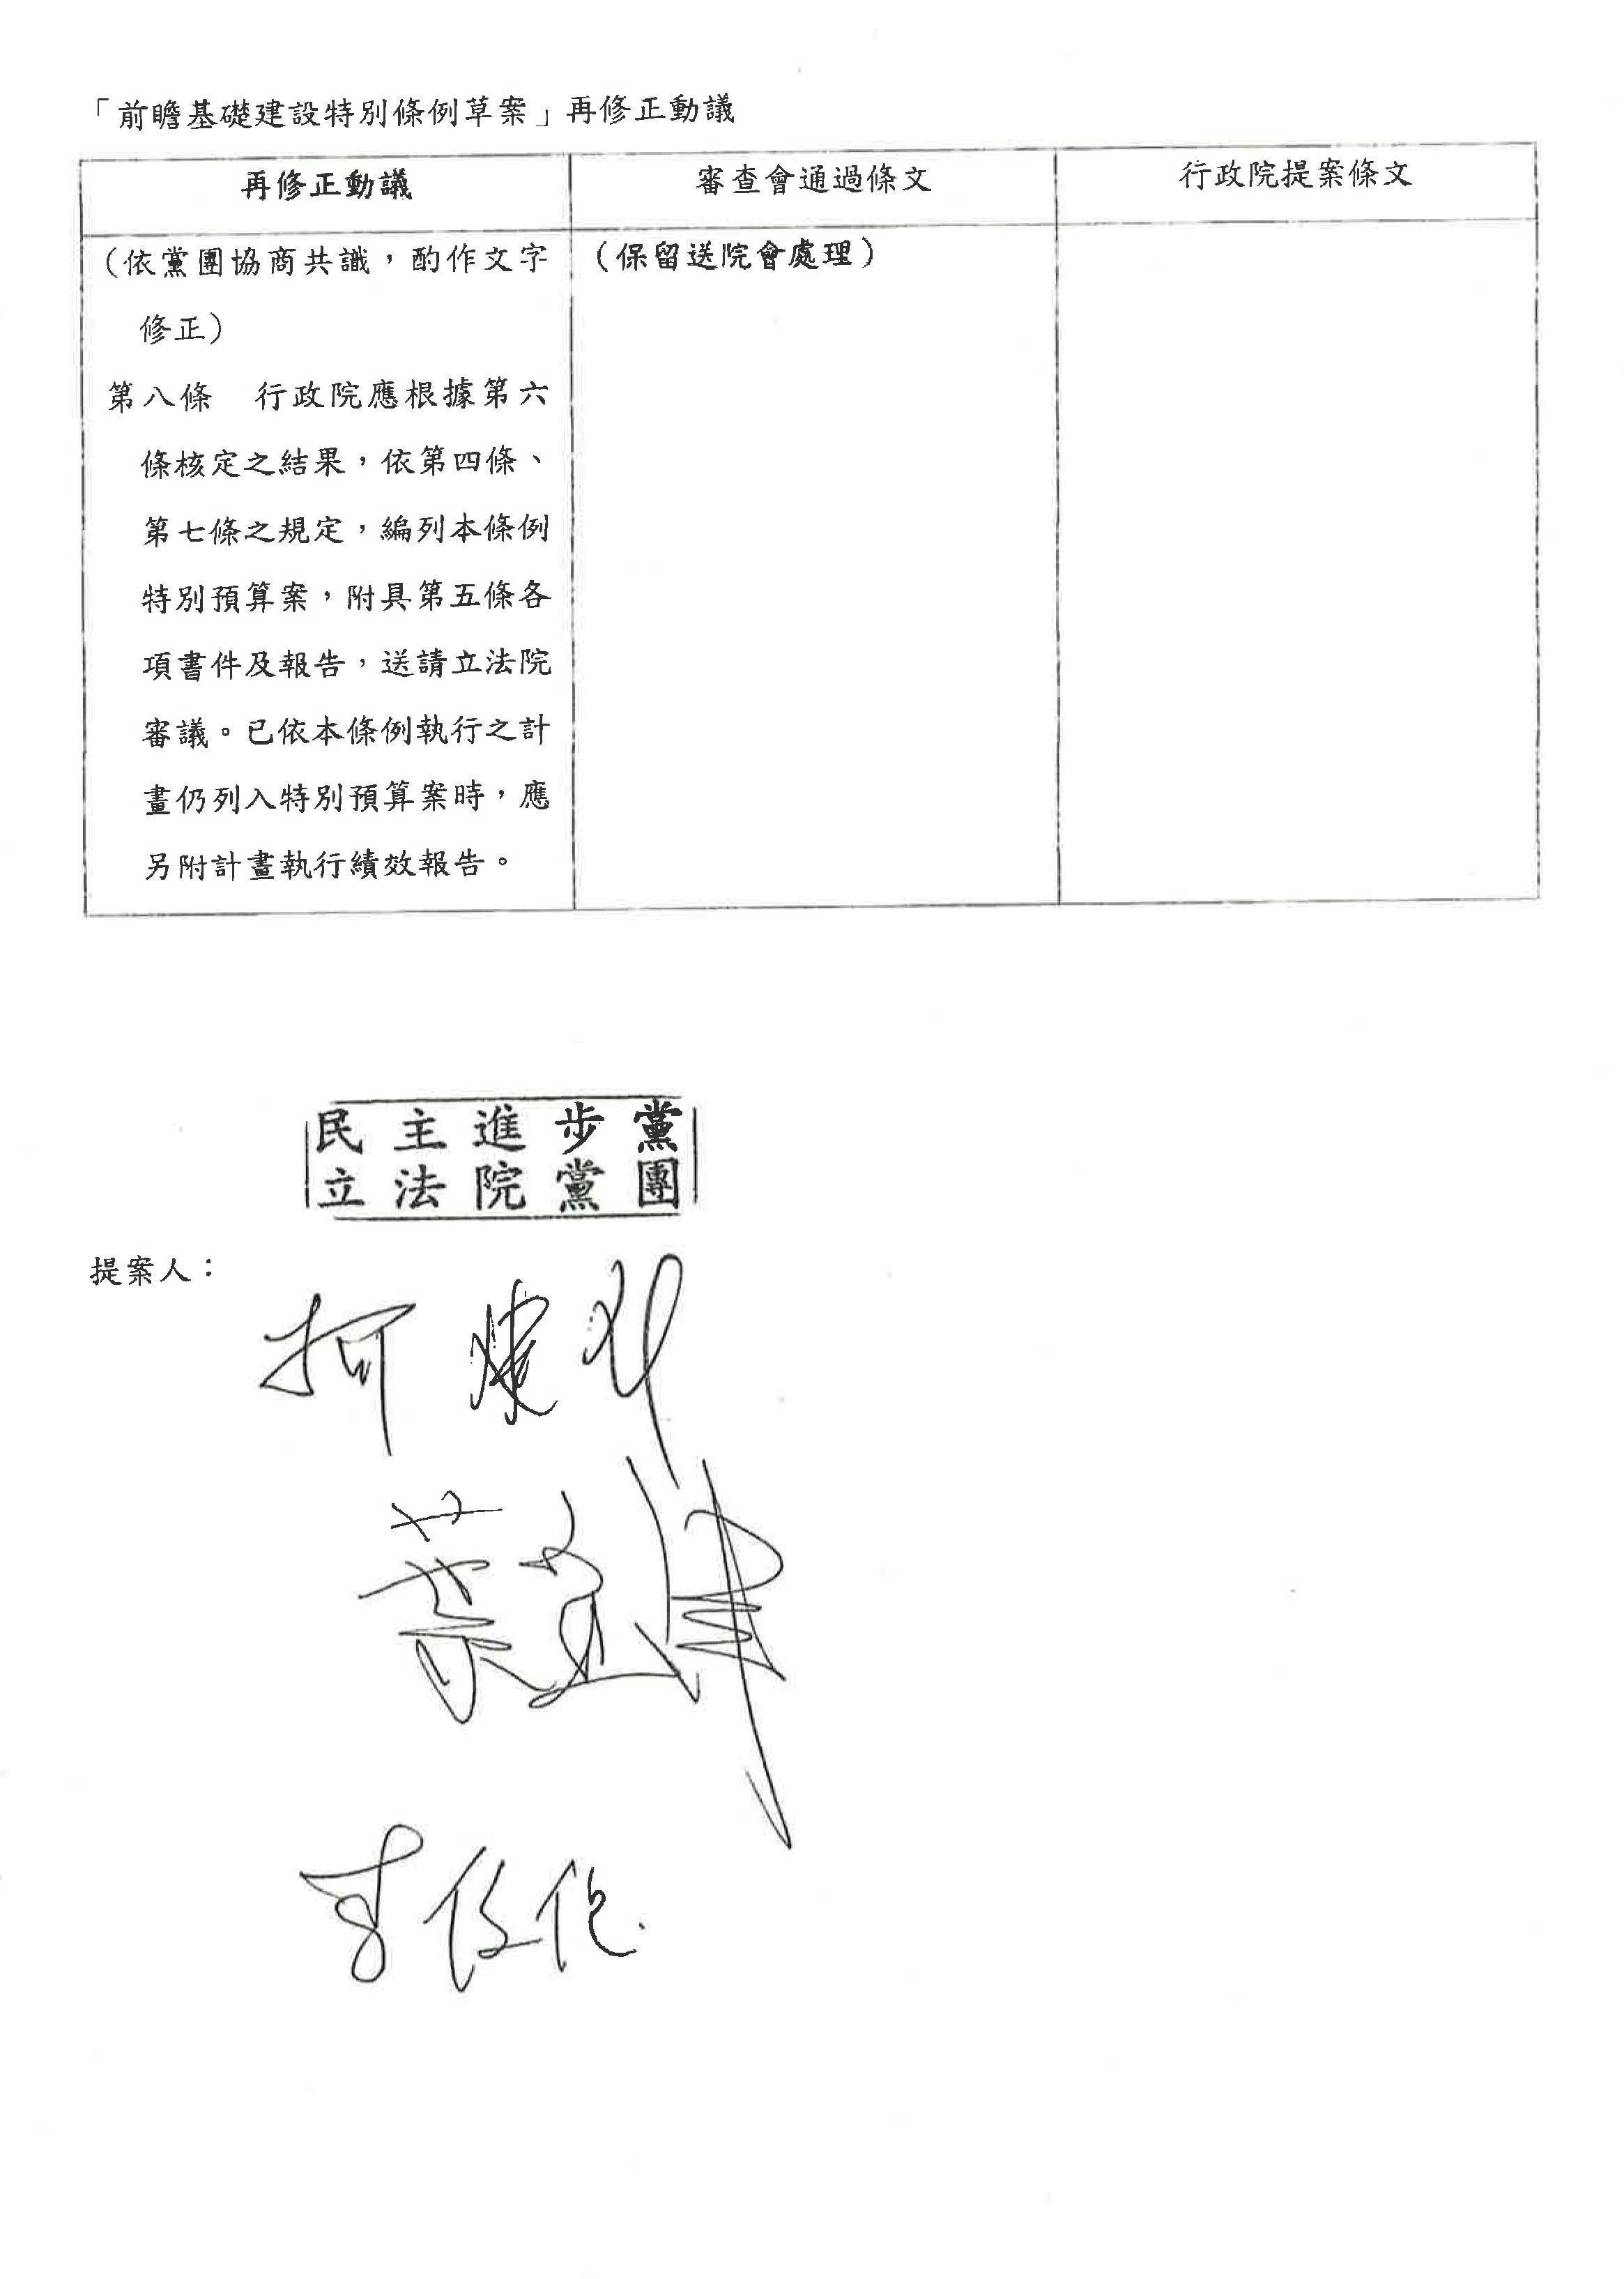 「前瞻基礎建設特別條例草案」再修正動議
再修正動議
審查會通過條文
行政院提案條文
（依黨團協商共識，酌作文字
修正）
第八條　行政院應根據第六
條核定之結果，依第四條、
第七條之規定，編列本條例
特別預算案，附具第五條各
項書件及報告，送請立法院
審議。已依本條例執行之計
畫仍列入特別預算案時，應
另附計畫執行績效報告。
（保留送院會處理）
民主進步黨
立法院黨團
提案人：
柯建銘
葉宜津
李俊俋